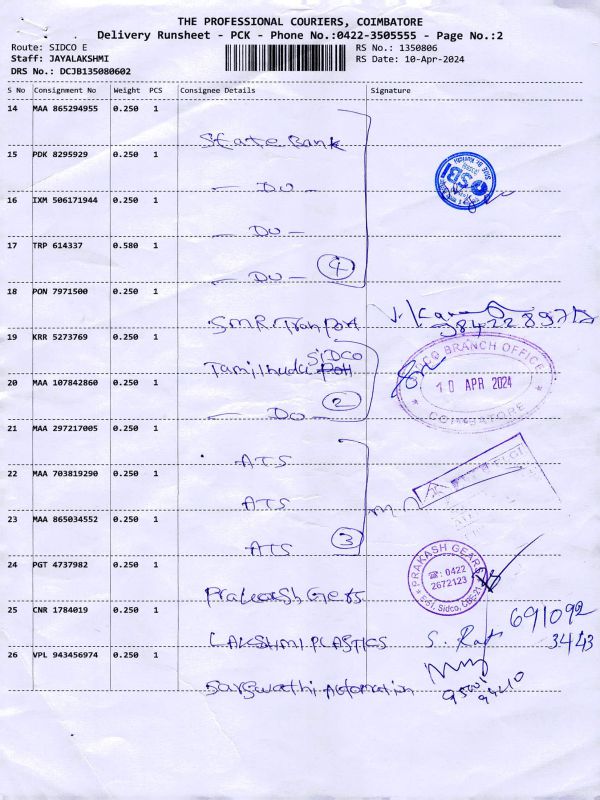 THE PROFESSIONAL COURIERS, COIMBATORE
Delivery Runsheet - PCK - Phone No.:0422-3505555 - Page No.:2
Route: SIDCO E
RS No.: 1350806
Staff: JAYALAKSHMI
RS Date: 10-Apr-2024
DRS No.: DCJB135080602
S No Consignment No Weight PCS Consignee Details Signature
14 MAA 865294955 0.250 1
State Bank
15 PDK 8295929 0.250 1
— DO —
SBI
16 IXM 506171944 0.250 1
— DO —
17 TRP 614337 0.580 1
— DO — 4
18 PON 7971500 0.250 1
SMR Tranport
19 KRR 5273769 0.250 1
SIDCO
Tamilnadu
BRANCH OFFICE
10 APR 2024
COIMBATORE
20 MAA 107842860 0.250 1
— DO — 2
21 MAA 297217005 0.250 1
ATS
22 MAA 703819290 0.250 1
ATS
23 MAA 865034552 0.250 1
ATS 3
24 PGT 4737982 0.250 1
Prakash Gers
PRAKASH GEARS
☎: 0422
2672123
Sidco, CBE-21
25 CNR 1784019 0.250 1
LAKSHMI PLASTICS
691092
3443
26 VPL 943456974 0.250 1
Sarswathi Automation